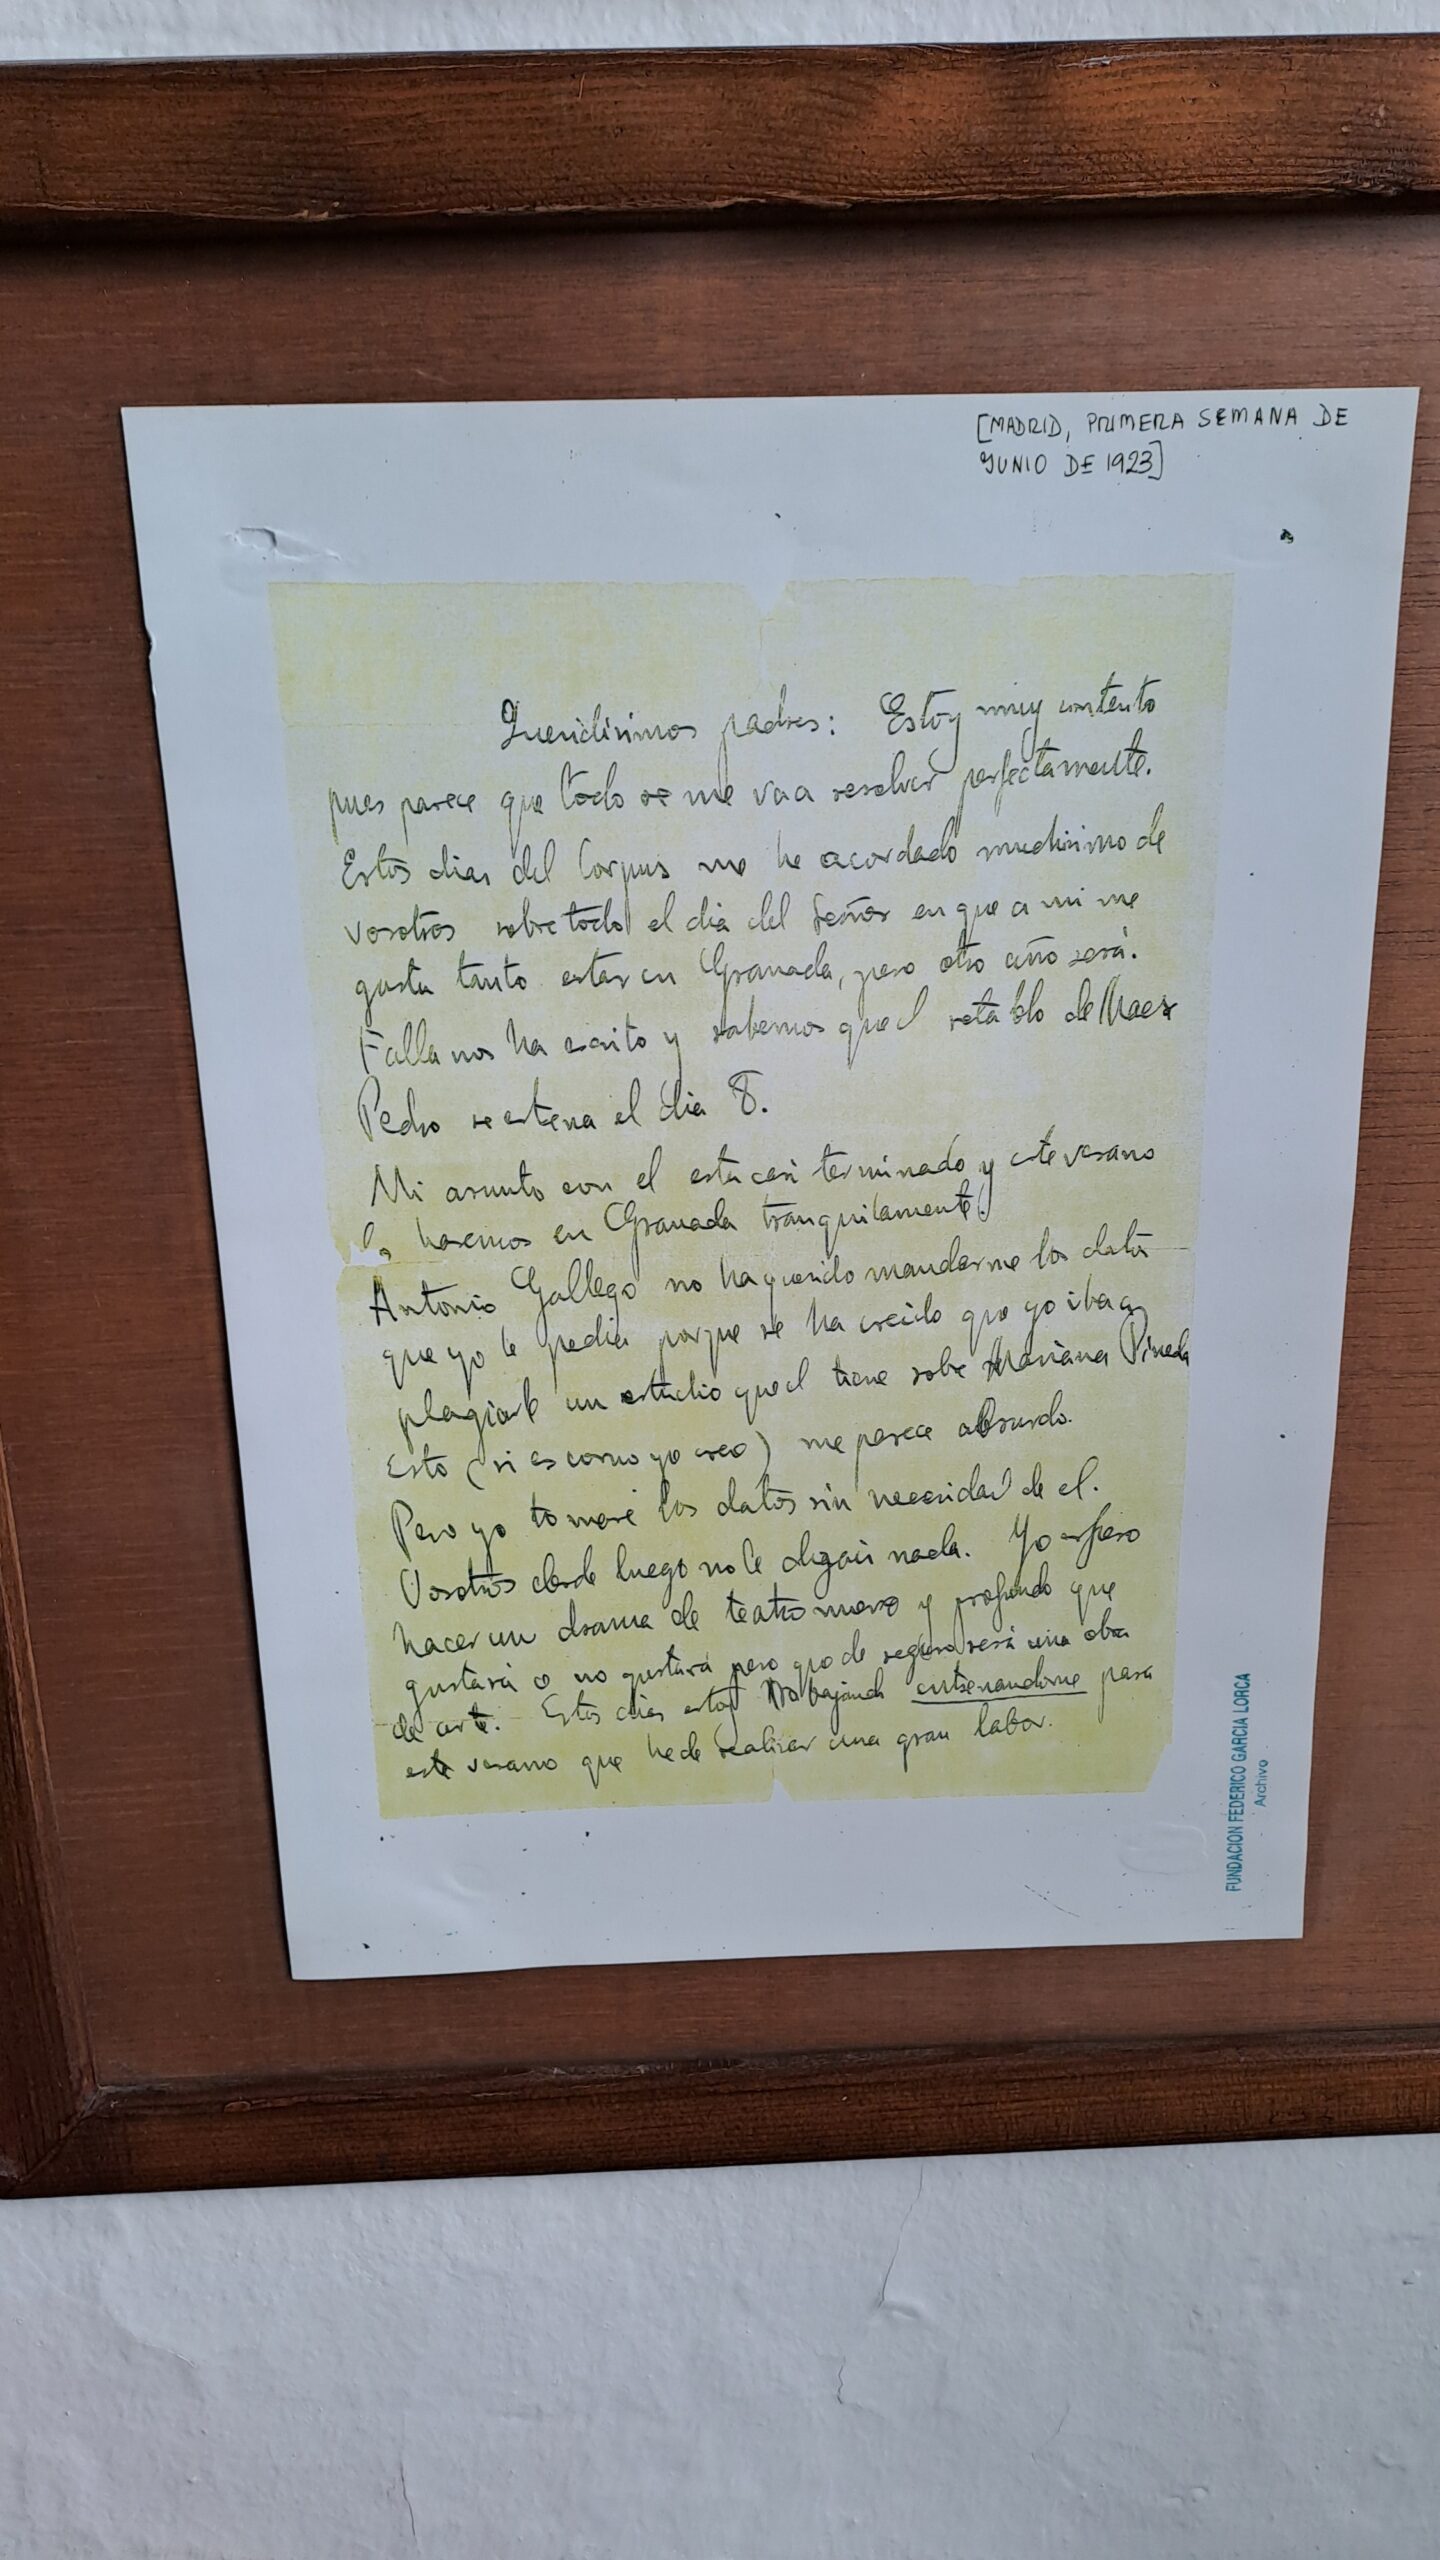 [MADRID, PRIMERA SEMANA DE
JUNIO DE 1923]
Queridisimos padres: Estoy muy contento
pues parece que todo se me va a resolver perfectamente.
Estos dias del Corpus me he acordado muchisimo de
vosotros sobre todo el dia del Señor en que a mi me
gusta tanto estar en Granada, pero otro año será.
Falla nos ha escrito y sabemos que el retablo de Maese
Pedro se estrena el dia 8.
Mi asunto con el esta casi terminado y este verano
lo haremos en Granada tranquilamente.
Antonio Gallego no ha querido mandarme los datos
que yo le pedia porque se ha creido que yo iba a
plagiarle un estudio que el tiene sobre Mariana Pineda
Esto (si es como yo creo) me parece absurdo.
Pero yo tomaré los datos sin necesidad de el.
Vosotros desde luego no le digais nada. Yo espero
hacer un drama de teatro nuevo y profundo que
gustará o no gustará pero que de seguro será una obra
de arte. Estos dias estoy trabajando entrenandome para
este verano que he de realizar una gran labor.
FUNDACION FEDERICO GARCIA LORCA
Archivo